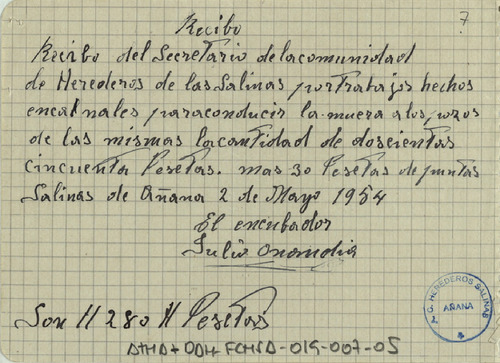 7
Recibo
Recibo del Secretario de lacomunidad
de Herederos de las Salinas por Trabajos hechos
encanales paraconducir la muera a los pozos
de las mismas lacantidad de doscientas
cincuenta Pesetas. mas 30 Pesetas de puntas
Salinas de Añana 2 de Mayo 1954
El encubador
Julio
Son # 280 # Pesetas
HEREDEROS SALINAS
AÑANA
ATHA+DDH+FCHSA-019-007-05